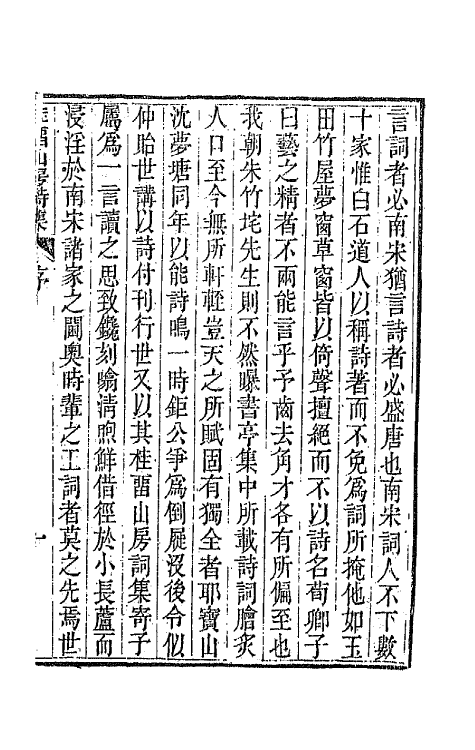 言詞者必南宋猶言詩者必盛唐也南宋詞人不下數
十家惟白石道人以稱詩著而不免爲詞所掩他如玉
田竹屋夢窗草窗皆以倚聲擅絕而不以詩名荀卿子
曰藝之精者不兩能言乎予齒去角才各有所偏至也
我朝朱竹垞先生則不然曝書亭集中所載詩詞膾炙
人口至今無所軒輊豈天之所賦固有獨全者耶寶山
沈夢塘同年以能詩鳴一時鉅公爭爲倒屣沒後令似
仲貽世講以詩付刊行世又以其桂畱山房詞集寄予
屬爲一言讀之思致鑱刻喻淸喣鮮借徑於小長蘆而
浸淫於南宋諸家之閫奧時輩之工詞者莫之先焉世
畱山房詩集 序 一